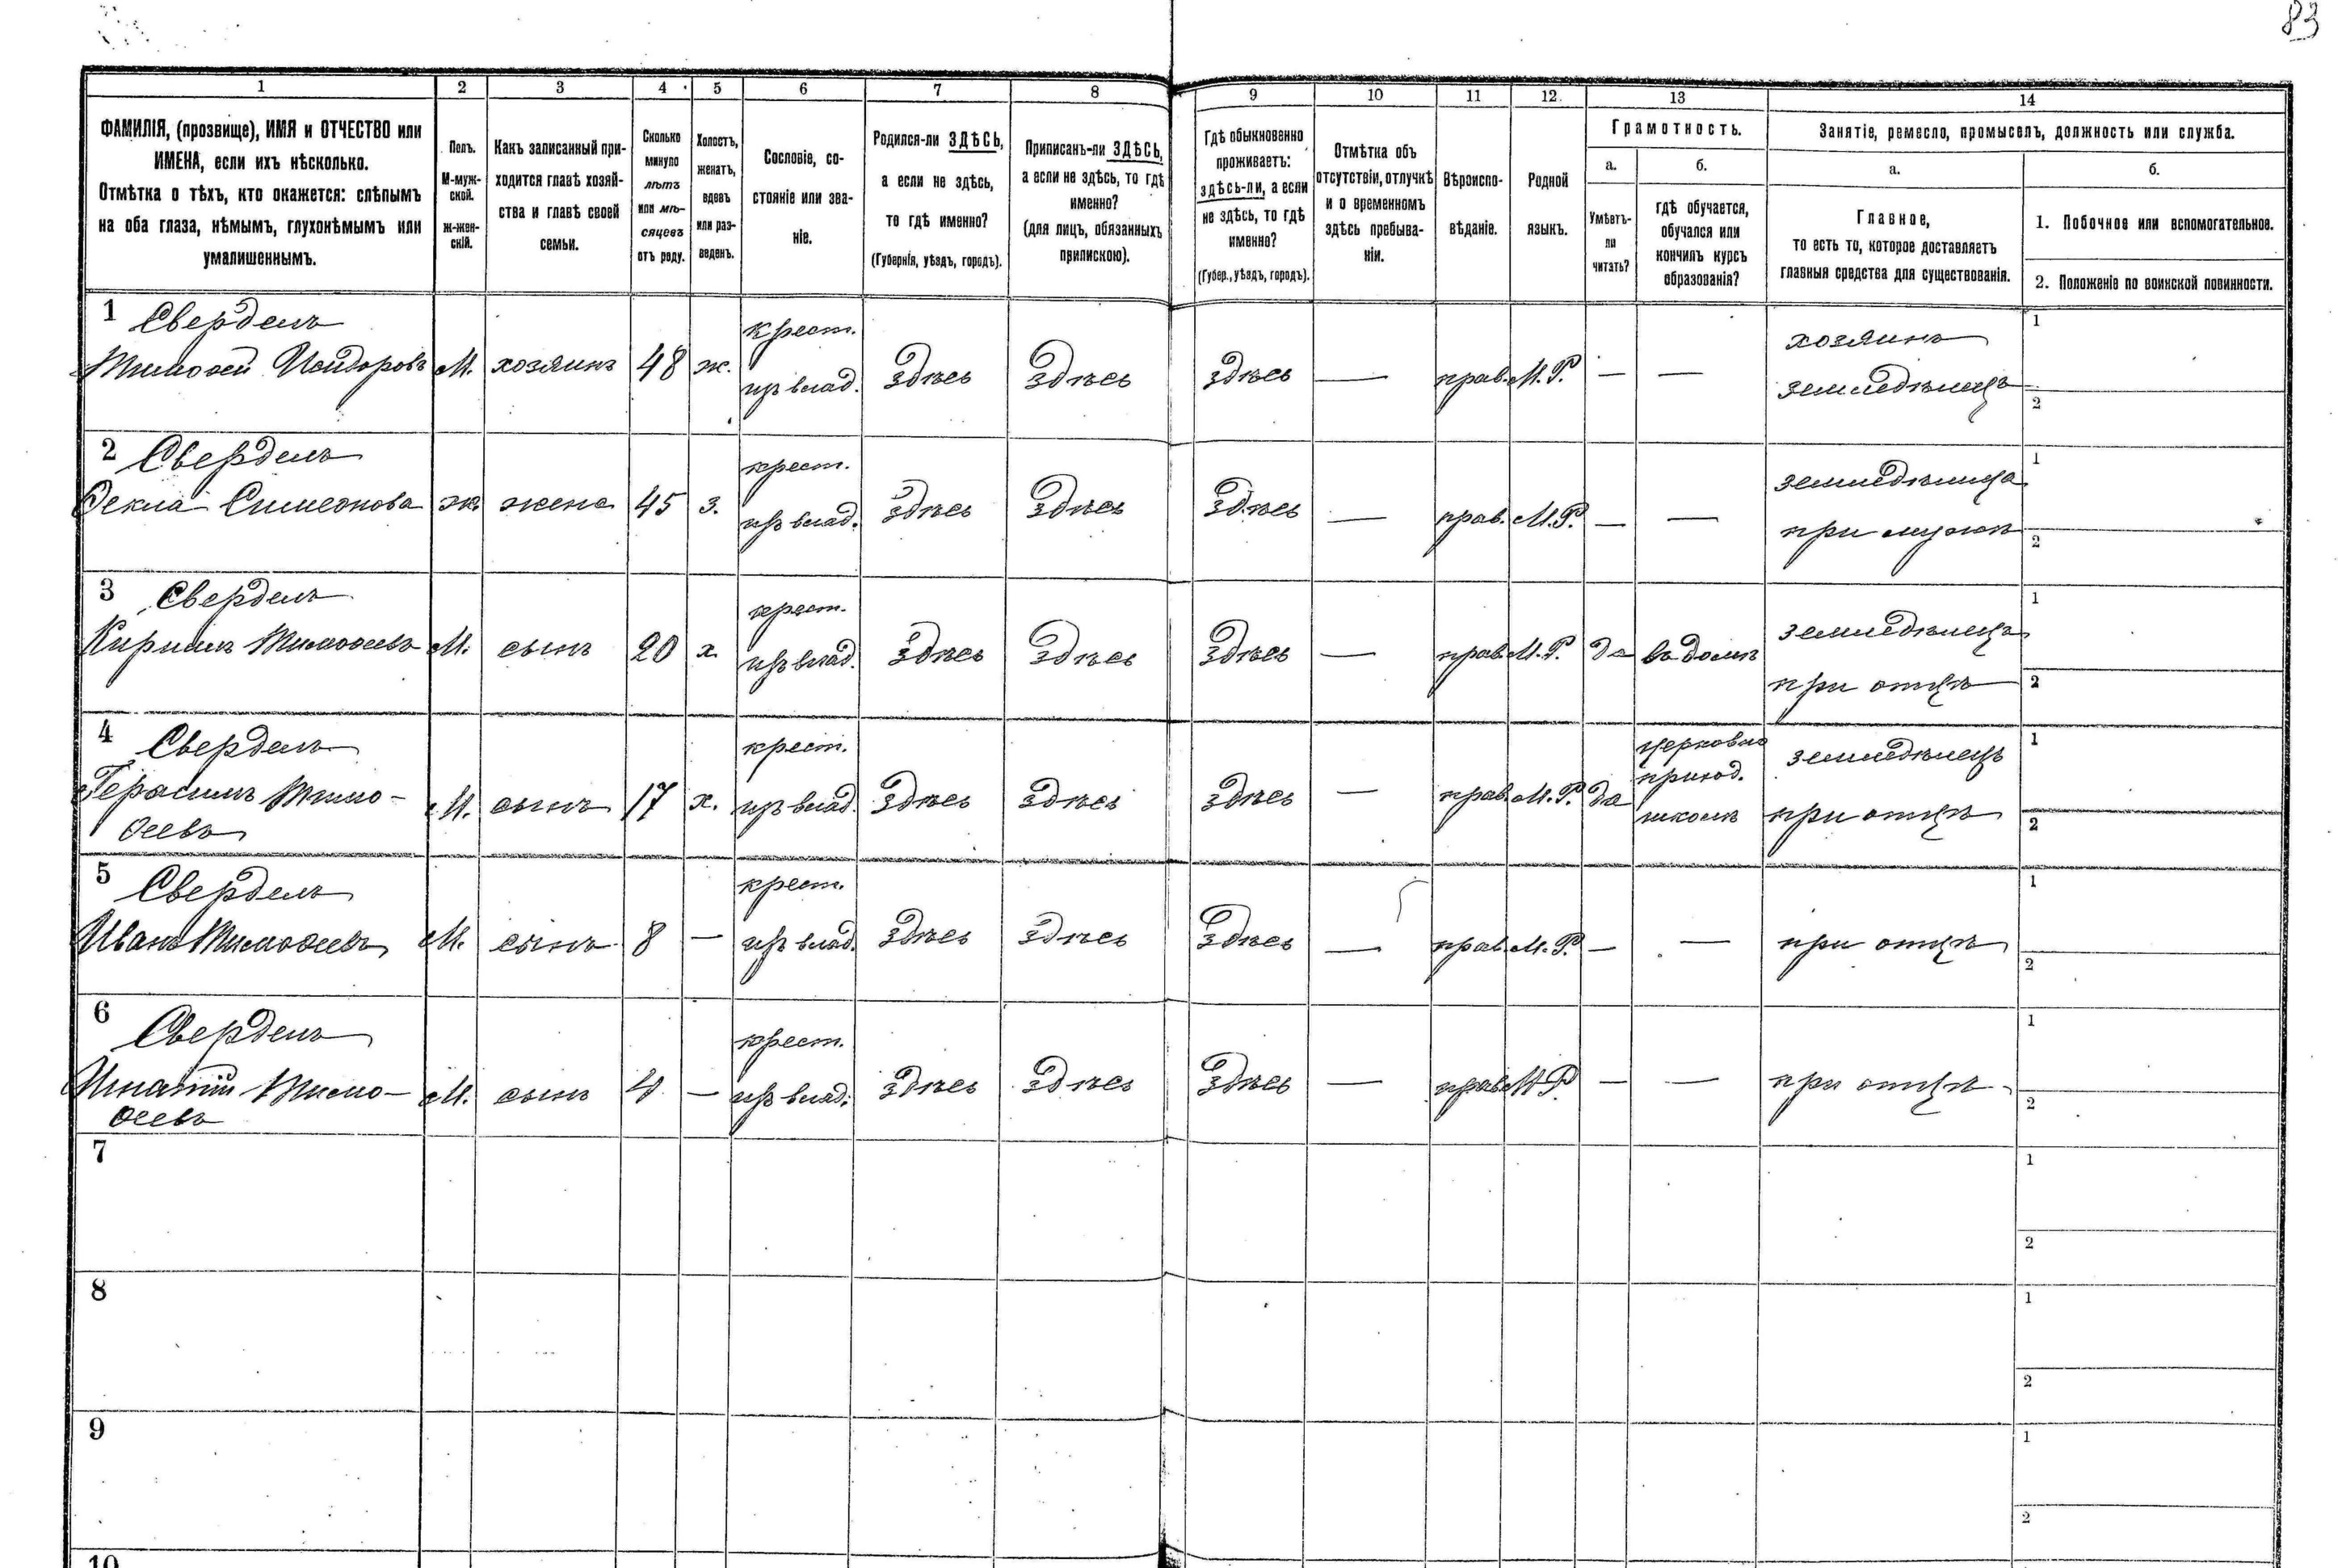 83
1 2 3 4 5 6 7 8 9 10 11 12 13 14
ФАМИЛІЯ, (прозвище), ИМЯ и ОТЧЕСТВО или
ИМЕНА, если ихъ нѣсколько.
Отмѣтка о тѣхъ, кто окажется: слѣпымъ
на оба глаза, нѣмымъ, глухонѣмымъ или
умалишеннымъ.
Полъ.
М-муж-
ской.
Ж-жен-
скій.
Какъ записанный при-
ходится главѣ хозяй-
ства и главѣ своей
семьи.
Сколько
минуло
лѣтъ
или мѣ-
сяцевъ
отъ роду.
Холостъ,
женатъ,
вдовъ
или раз-
веденъ.
Сословіе, со-
стояніе или зва-
ніе.
Родился-ли ЗДѢСЬ,
а если не здѣсь,
то гдѣ именно?
(Губернія, уѣздъ, городъ).
Приписанъ-ли ЗДѢСЬ,
а если не здѣсь, то гдѣ
именно?
(для лицъ, обязанныхъ
припискою).
Гдѣ обыкновенно
проживаетъ:
здѣсь-ли, а если
не здѣсь, то гдѣ
именно?
(Губер., уѣздъ, городъ).
Отмѣтка объ
отсутствіи, отлучкѣ
и о временномъ
здѣсь пребыва-
ніи.
Вѣроиспо-
вѣданіе.
Родной
языкъ.
Грамотность.
а.
Умѣетъ-
ли
читать?
б.
гдѣ обучается,
обучался или
кончилъ курсъ
образованія?
Занятіе, ремесло, промыселъ, должность или служба.
а.
Главное,
то есть то, которое доставляетъ
главныя средства для существованія.
б.
1. Побочное или вспомогательное.
2. Положеніе по воинской повинности.
1 Свердель крест. хозяинъ 1
Тимофей Исидоровъ М. хозяинъ 48 ж. изъ влад. Здѣсь Здѣсь Здѣсь — прав. М. Р. — — земледѣлецъ 2
2 Свердель крест. земледѣлица 1
Ѳекла Симеонова ж. жена 45 з. изъ влад. Здѣсь Здѣсь Здѣсь — прав. М. Р. — — при мужѣ 2
3 Свердель крест. земледѣлецъ 1
Кирилъ Тимоѳеевъ М. сынъ 20 х. изъ влад. Здѣсь Здѣсь Здѣсь — прав. М. Р. да въ домѣ при отцѣ 2
4 Свердель крест. церковно земледѣлецъ 1
Герасимъ Тимо- М. сынъ 17 х. изъ влад. Здѣсь Здѣсь Здѣсь — прав. М. Р. да приход. при отцѣ 2
ѳеевъ школѣ
5 Свердель крест. 1
Иванъ Тимоѳеевъ М. сынъ 8 — изъ влад. Здѣсь Здѣсь Здѣсь — прав. М. Р. — — при отцѣ 2
6 Свердель крест. 1
Игнатій Тимо- М. сынъ 4 — изъ влад. Здѣсь Здѣсь Здѣсь — прав. М. Р. — — при отцѣ 2
ѳеевъ
7 1
2
8 1
2
9 1
2
10